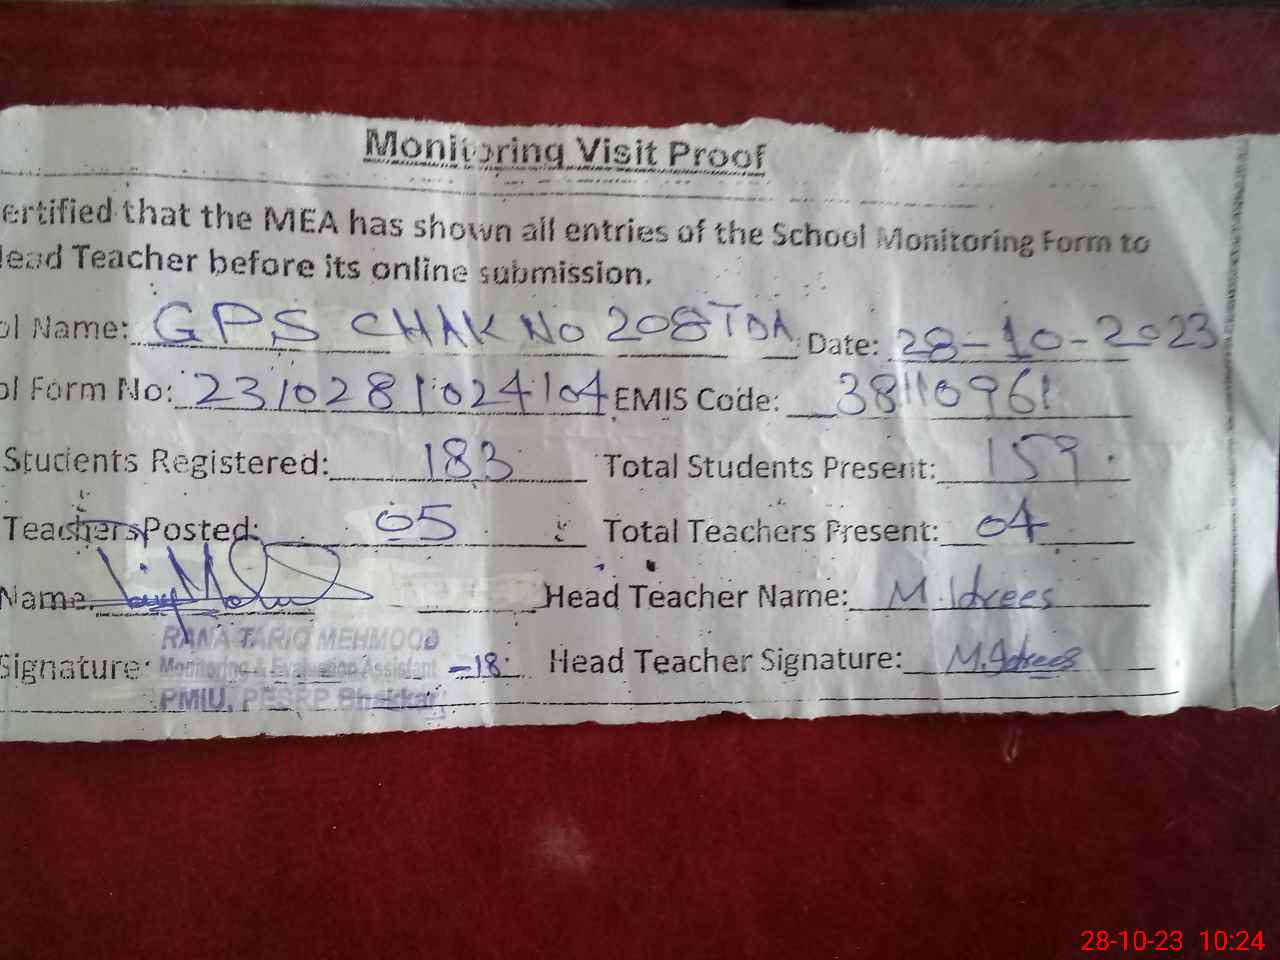 Monitoring Visit Proof
ertified that the MEA has shown all entries of the School Monitoring Form to
lead Teacher before its online submission.
ol Name: GPS CHAK No 208 TDA Date: 28-10-2023
ol Form No: 2310281024104 EMIS Code: 38110961
Students Registered: 183 Total Students Present: 159
Teachers Posted: 05 Total Teachers Present: 04
Name: Head Teacher Name: M. Idrees
RANA TARIQ MEHMOOD
Signature: Monitoring & Evaluation Assistant -18 Head Teacher Signature: M. Idrees
PMIU, PESRP Bhakkar
28-10-23 10:24